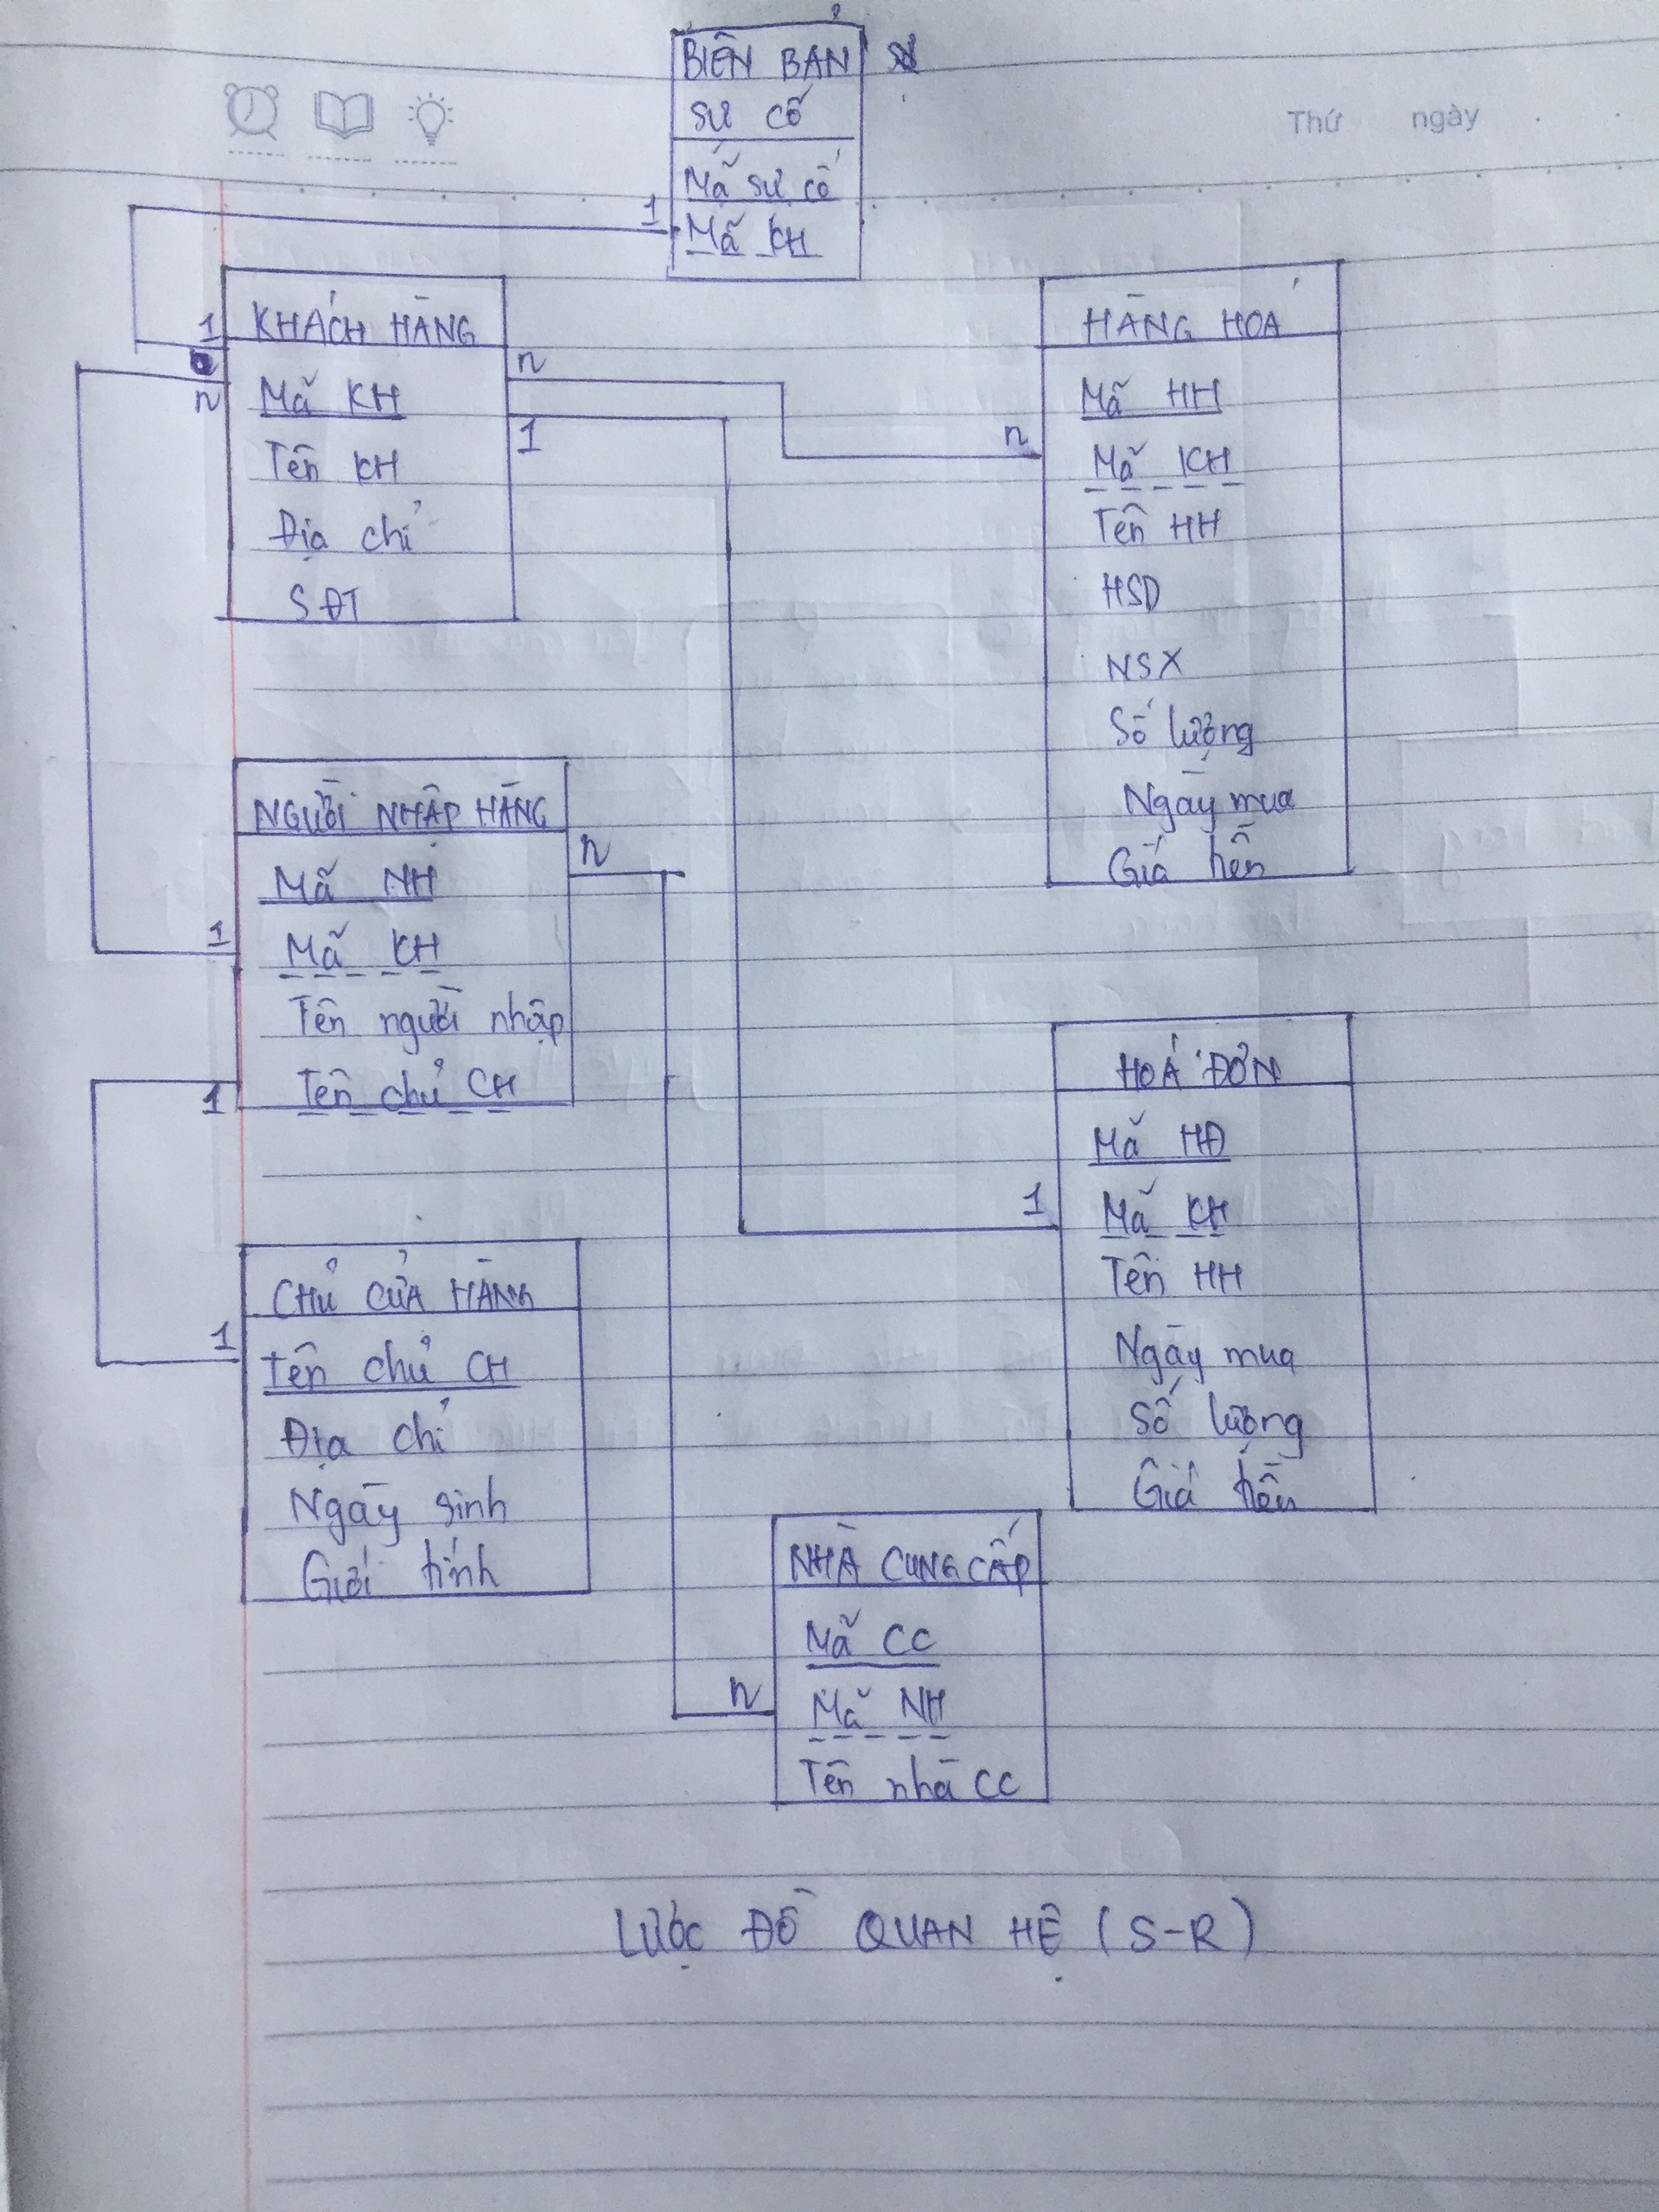 BIÊN BẢN
sự cố
Mã sự cố
Mã KH
Thứ ngày
1
1
n
KHÁCH HÀNG
Mã KH
Tên KH
Địa chỉ
SĐT
n
1
n
HÀNG HOÁ
Mã HH
Mã KH
Tên HH
HSD
NSX
Số lượng
Ngày mua
Giá tiền
NGƯỜI NHẬP HÀNG
Mã NH
Mã KH
Tên người nhập
Tên chủ CH
n
1
1
HOÁ ĐƠN
Mã HĐ
Mã KH
Tên HH
Ngày mua
Số lượng
Giá tiền
1
CHỦ CỬA HÀNG
Tên chủ CH
Địa chỉ
Ngày sinh
Giới tính
1
NHÀ CUNG CẤP
Mã CC
Mã NH
Tên nhà CC
n
LƯỢC ĐỒ QUAN HỆ (S-R)